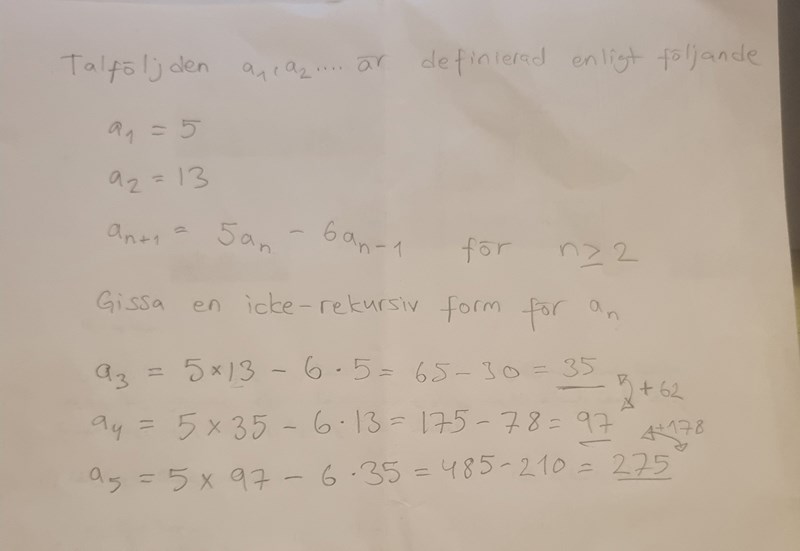 Talföljden a₁, a₂.... är definierad enligt följande
a₁ = 5
a₂ = 13
aₙ₊₁ = 5aₙ - 6aₙ₋₁ för n ≥ 2
Gissa en icke-rekursiv form för aₙ
a₃ = 5×13 - 6·5 = 65-30 = 35
+62
a₄ = 5×35 - 6·13 = 175-78 = 97
+178
a₅ = 5×97 - 6·35 = 485-210 = 275